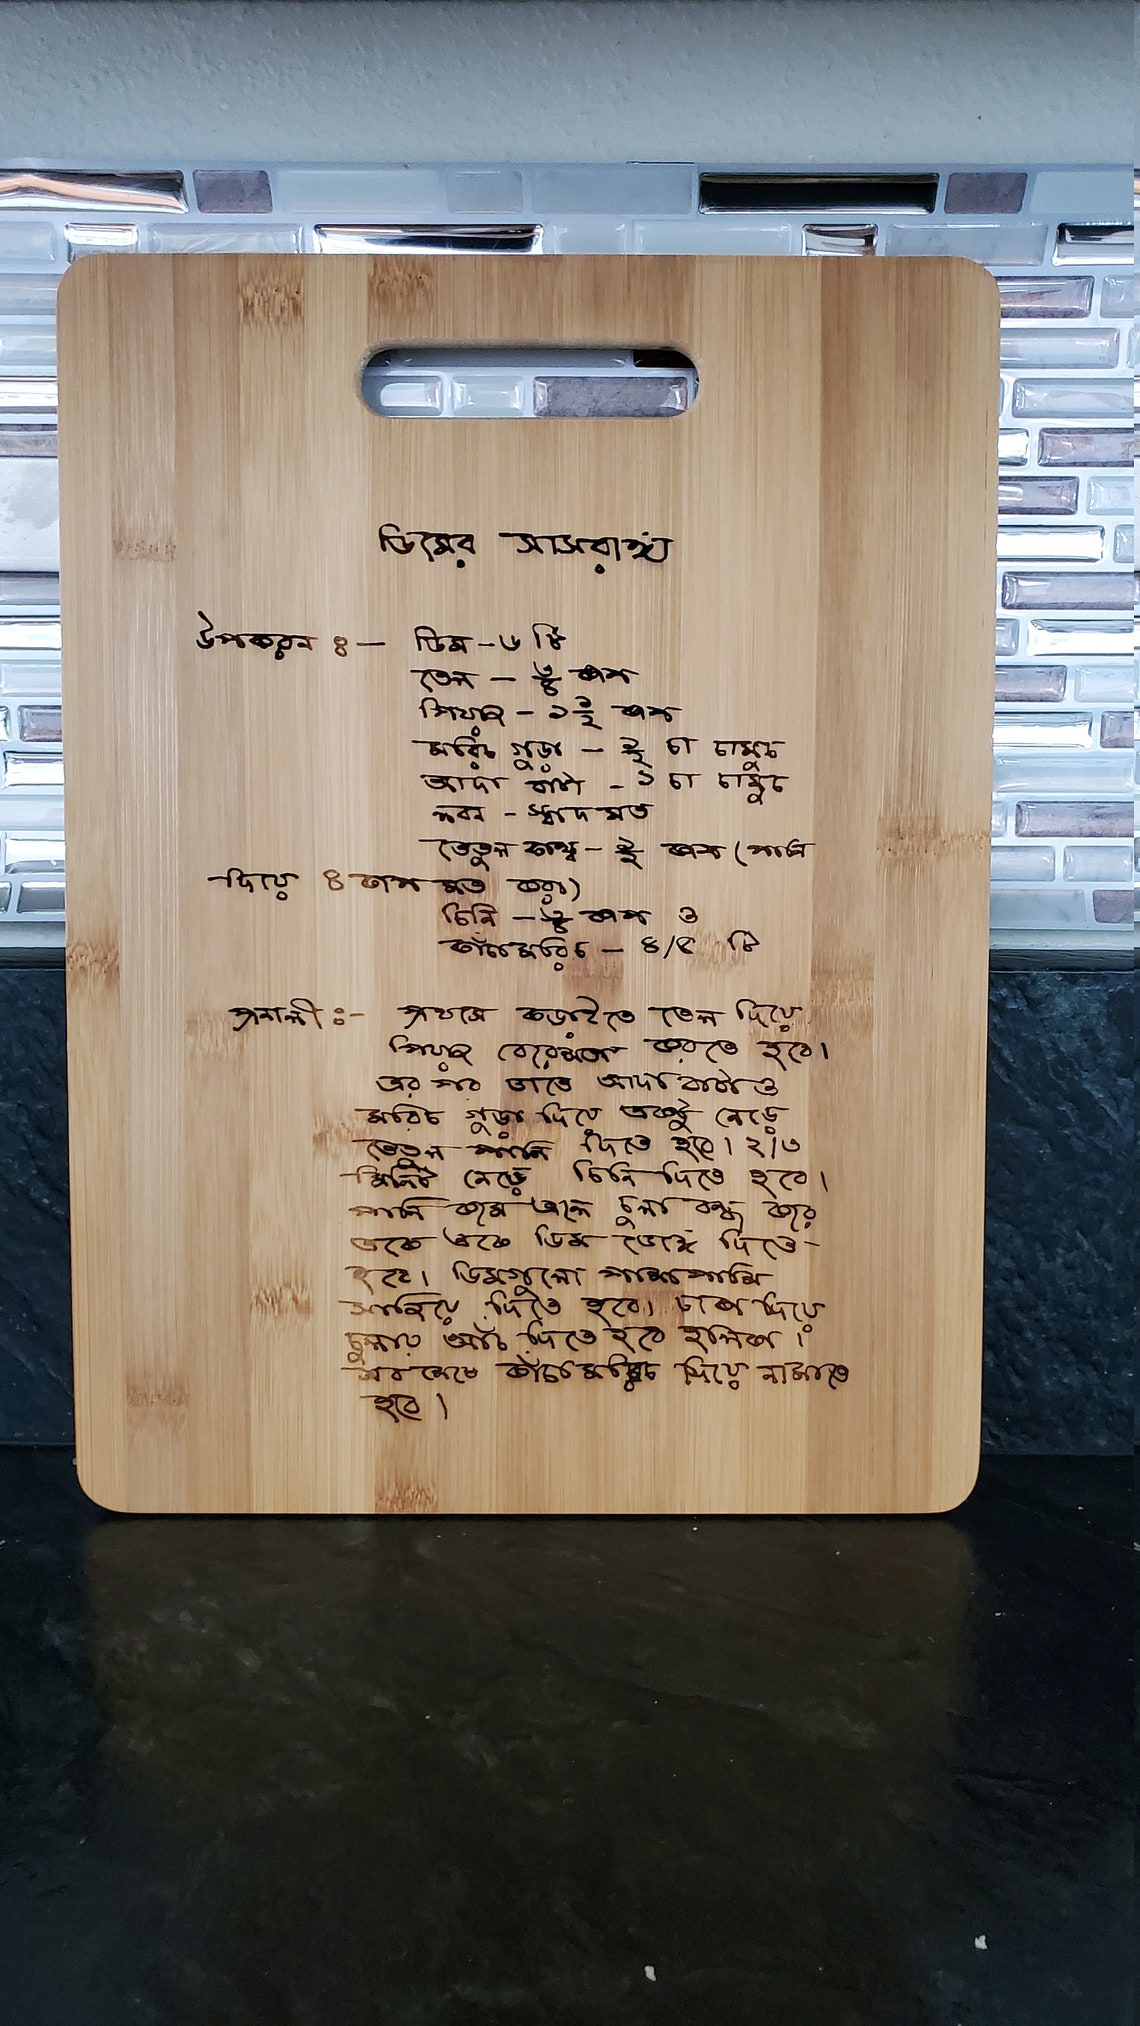 ডিমের সাসরাঙ্গা
উপকরন ঃ— ডিম - ৬ টি
তেল — কাপ
পিয়াজ - ১ ১/২ কাপ
মরিচ গুড়া — ১/২ চা চামুচ
আদা বাটা - ১ চা চামুচ
লবন - স্বাদ মত
তেতুল কাথ্ব - ১/২ কাপ (পানি
দিয়ে ৪ কাপ মত করা)
চিনি — কাপ ও
কাঁচামরিচ — ৪/৫ টি
প্রনালী ঃ- প্রথমে কড়াইতে তেল দিয়ে
পিয়াজ বেরেস্তা করতে হবে।
এর পর তাতে আদা বাটা ও
মরিচ গুড়া দিয়ে একটু নেড়ে
তেতুল পানি দিতে হবে। ২/৩
মিনিট নেড়ে চিনি দিতে হবে।
পানি কমে এলে চুলা বন্ধ করে
একে একে ডিম ভেঙ্গে দিতে-
হবে। ডিমগুলো পাশাপাশি
সাজিয়ে দিতে হবে। ঢাকা দিয়ে
চুলায় আঁচ দিতে হবে হালিকা।
সব শেষে কাঁচা মরিচ দিয়ে নামাতে
হবে।